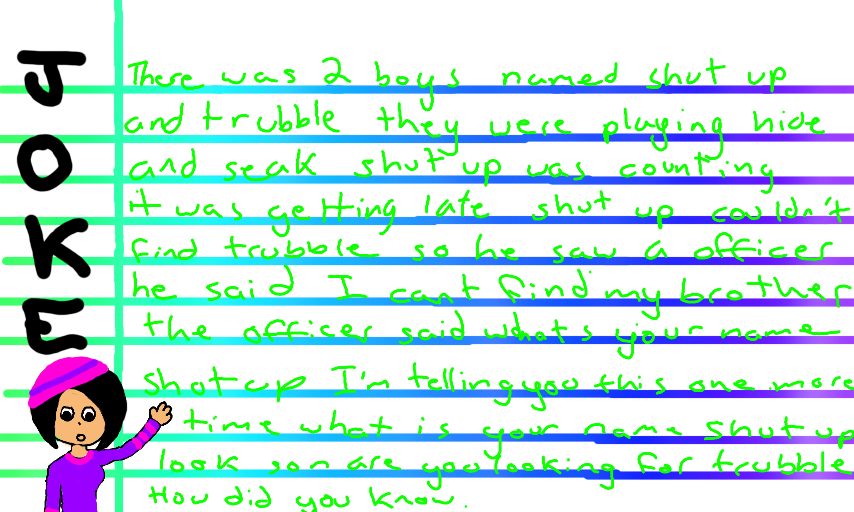 JOKE
There was 2 boys named shut up
and trubble they were playing hide
and seak shut up was counting
it was getting late shut up couldn't
find trubble so he saw a officer
he said I cant find my brother
the officer said whats your name
shot up I'm telling you this one more
time what is your name shut up
look son are you looking for trubble
How did you know.